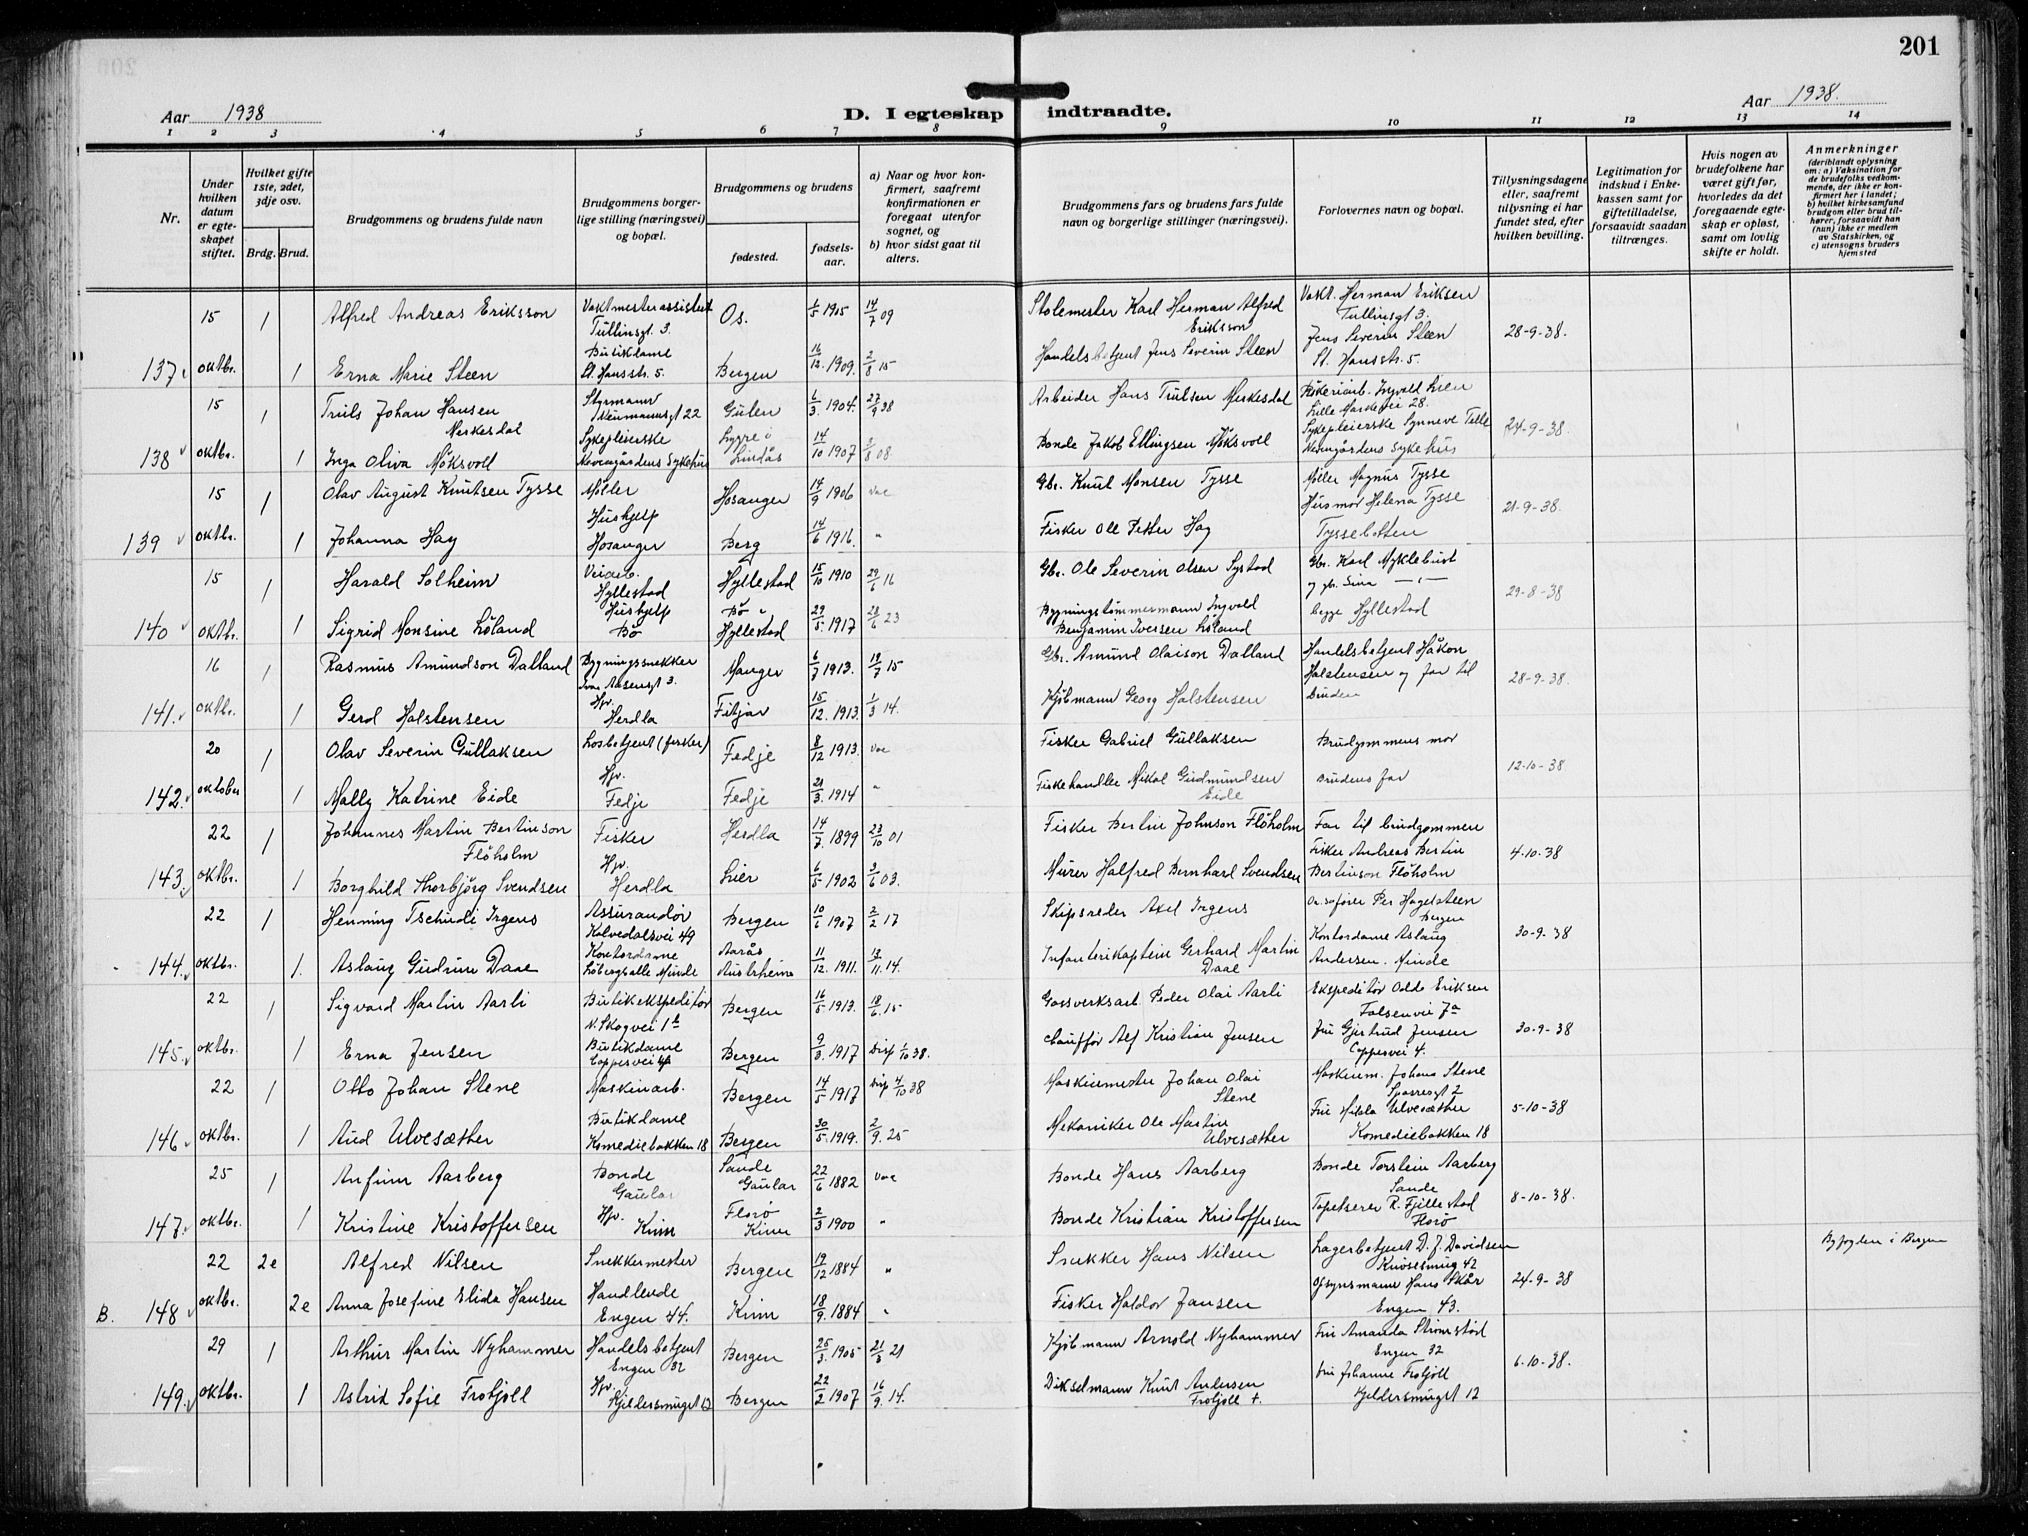 201
Aar 1938
D. I egteskap indtraadte.
Aar 1938.
1 2 3 4 5 6 7 8 9 10 11 12 13 14
Nr.
Under hvilken datum er egteskapet stiftet.
Hvilket gifte 1ste, 2det, 3dje osv.
Brdg. Brud.
Brudgommens og brudens fulde navn
Brudgommens borgerlige stilling (næringsvei) og bopæl.
Brudgommens og brudens
fødested.
fødselsaar.
a) Naar og hvor konfirmert, saafremt konfirmationen er foregaat utenfor sognet, og
b) hvor sidst gaat til alters.
Brudgommens fars og brudens fars fulde navn og borgerlige stillinger (næringsvei).
Forlovernes navn og bopæl.
Tillysningsdagene eller, saafremt tillysning ei har fundet sted, efter hvilken bevilling.
Legitimation for indskud i Enkekassen samt for giftetilladelse, forsaavidt saadan tiltrænges.
Hvis nogen av brudefolkene har været gift før, hvorledes da det foregaaende egteskap er opløst, samt om lovlig skifte er holdt.
Anmerkninger
(deriblandt oplysning om: a) Vaksination for de brudefolks vedkommende, der ikke er konfirmert her i landet; b) hvilket kirkesamfund brudgom eller brud tilhører, forsaavidt han (hun) ikke er medlem av Statskirken, og c) utensogns bruders hjemsted
15 1 Alfred Andreas Eriksson Vaktmesterassistent Tullinsgt. 3. Os. 1/5 1905 14/7 09 Stolemester Karl Herman Alfred Eriksson Vakt. Herman Eriksen Tullinsgt 3. 28-9-38.
137 oktbr. 1 Erna Marie Steen Butikdame St. Hansstr. 5 Bergen 16/12 1909. 2/8 15 Handelsbetjent Jens Severin Steen Jens Severin Steen St. Hansstr. 5.
15 1 Truls Johan Hansen Merkesdal Styrmann 22 Gulen 6/3 1904. 27/9 38 Arbeider Hans Trulsen Merkesdal Ingvald Lien 28. 24-9-38.
138 oktbr. 1 Inga Oliva Møksvoll Sykepleierske Nevengårdens Sykehus Lygre i Lindås 14/10 1907 2/8 08 Bonde Jakob Ellingsen Møksvoll Sykepleierske Synneve Telle Nevengårdens Sykehus
15 1 Olav August Knutsen Tysse Møller Hosanger 14/9 1906 vac Gbr. Knut Monsen Tysse Møller Magnus Tysse 21-9-38.
139 oktbr. 1 Johanna Hay Hushjelp Hosanger Berg 14/6 1916. " Fisker Ole Petter Hay Husmor Helena Tysse Tyssebotten
15 1 Harald Solheim Veiarb. Hyllestad Hyllestad 15/10 1910 29/6 16 Gbr. Ole Severin Olsen Systad Gbr. Karl Myklebust 29-8-38
140 oktbr. 1 Sigrid Monsine Løland Hushjelp Bø Bø Hyllestad 29/5 1917 28/6 23 Bygningstømmermann Ingvald Benjamin Iversen Løland og gb. Sina — " — begge Hyllestad
16 1 Rasmus Amundson Dalland Bygningssnekker Ivar Aasensgt 3. Manger 6/7 1913. 19/7 15 Gbr. Amund Olaison Dalland Handelsbetjent Håkon Halstensen og far til bruden 28-9-38.
141. oktbr. 1 Gerd Halstensen Hjv. Herdla Fitjar 15/12 1913. 1/3 14. Kjøbmann Georg Halstensen
20 1 Olav Severin Gullaksen Losbetjent (fisker) Fedje 8/12 1913. vac Fisker Gabriel Gullaksen Brudgommens mor 12-10-38
142. oktober 1 Mally Katrine Eide Hjv. Fedje Fedje 21/3 1914 " Fiskehandler Mikal Gudmundsen Eide Brudens far
22 1 Johannes Martin Bertinson Fløholm Fisker Herdla 14/7 1899 23/10 01 Fisker Bertin Johnson Fløholm Far til brudgommen 4-10-38
143 oktbr. 1 Borghild Thorbjørg Svendsen Hjv. Herdla Lier 6/5 1902 3/6 03. Murer Halfred Bernhard Svendsen Fisker Andreas Bertin Bertinson Fløholm
22 1 Henning Tschudi Irgens Assurandør Kalvedalsvei 49 Bergen 10/6 1907 2/2 17 Skipsreder Axel Irgens Per Hagelsteen Bergen 30-9-38
144. oktbr. 1. Aslaug Gudrun Daae Kontordame Minde Aarås Austrheim 11/12 1911. 14. Infanterikaptein Gerhard Martin Daae Kontordame Aslaug Andersen. Minde
22 1 Sigvard Martin Aarli Butikekspeditør N. Skogvei 1b Bergen 16/5 1913. 18/6. 15 Gassverksarb. Peder Olai Aarli Ekspeditør Odd Eriksen Falsenvei 7a 30-9-38
145. oktbr. 1 Erna Jensen Butikdame Coppesvei 4 Bergen 9/3 1917 Disp 1/10 38. Chauffør Alf Kristian Jensen Fru Gjertrud Jensen Coppesvei 4.
22 1 Otto Johan Stene Maskinarb. Bergen 14/5 1917 Disp 4/10 38 Maskinmester Johan Olai Stene Maskinm. Johan Stene Sparresgt 2 5-10-38
146 oktbr. 1 Aud Ulvesæther Butikdame Komediebakken 18 Bergen 30/5 1919. 2/9. 25 Mekaniker Ole Martin Ulvesæther Fru Hilda Ulvesæther Komediebakken 18
25 1 Anfinn Aarberg Bonde Gaular Sande Gaular 22/6 1882 vac Bonde Hans Aarberg Bonde Torstein Aarberg Sande 8-10-38.
147. oktbr. 1 Kristine Kristoffersen Hjv. Kinn Florø Kinn 2/3 1900 " Bonde Kristian Kristoffersen Tapetserer R. Fjellestad Florø
22 2e Alfred Nilsen Snekkermester Bergen 19/12 1884 " Snekker Hans Nilsen Lagerbetjent D. J. Davidsen Knøsesmug 42 24-9-38 Byfogden i Bergen
B. 148 oktbr. 2e Anna Josefine Elida Hansen Handlende Engen 44. Kinn 18/9. 1884 " Fisker Haldor Jansen Opsynsmann Hans Skår Engen 43.
29 1 Arthur Martin Nyhammer Handelsbetjent Engen 32 Bergen 25/3. 1905 21/3 21 Kjøbmann Arnold Nyhammer Fru Amanda Strømstad Engen 32 6-10-38.
149. oktbr. 1 Astrid Sofie Frotjoll Hjv. Kjeldersmuget 12 Bergen 22/2 1907 16/9. 14. Dikselmann Knut Andersen Frotjoll +. Fru Johanne Frotjoll Kjeldersmuget 12